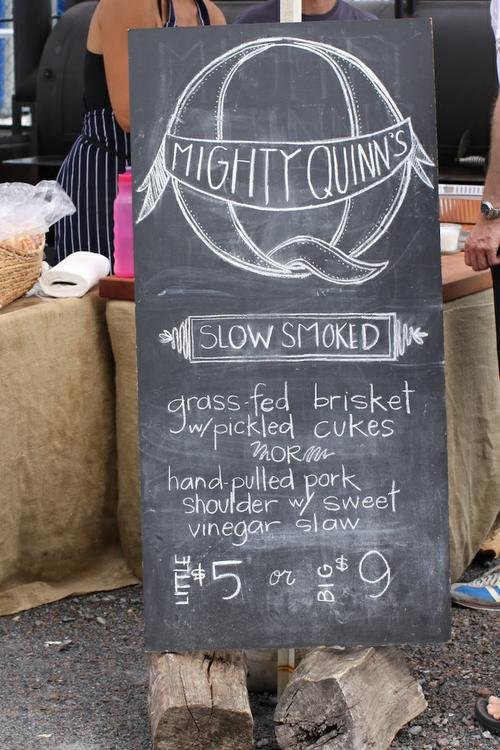 MIGHTY QUINN'S
SLOW SMOKED
grass-fed brisket
w/pickled cukes
OR
hand-pulled pork
shoulder w/ sweet
vinegar slaw
LITTLE $5 or BIG $9